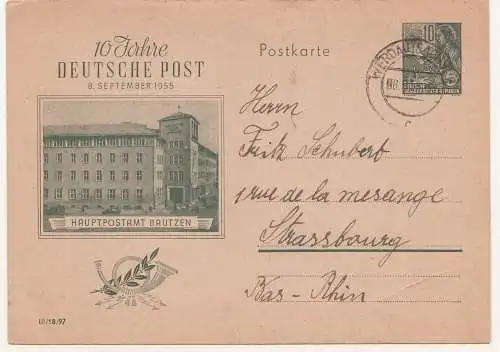 10 Jahre
DEUTSCHE POST
8. SEPTEMBER 1955
HAUPTPOSTAMT BAUTZEN
III/18/97
Postkarte
10
WERDAU
Herrn
Fritz Schubert
1 rue de la mesange
Strassbourg
Bas-Rhin